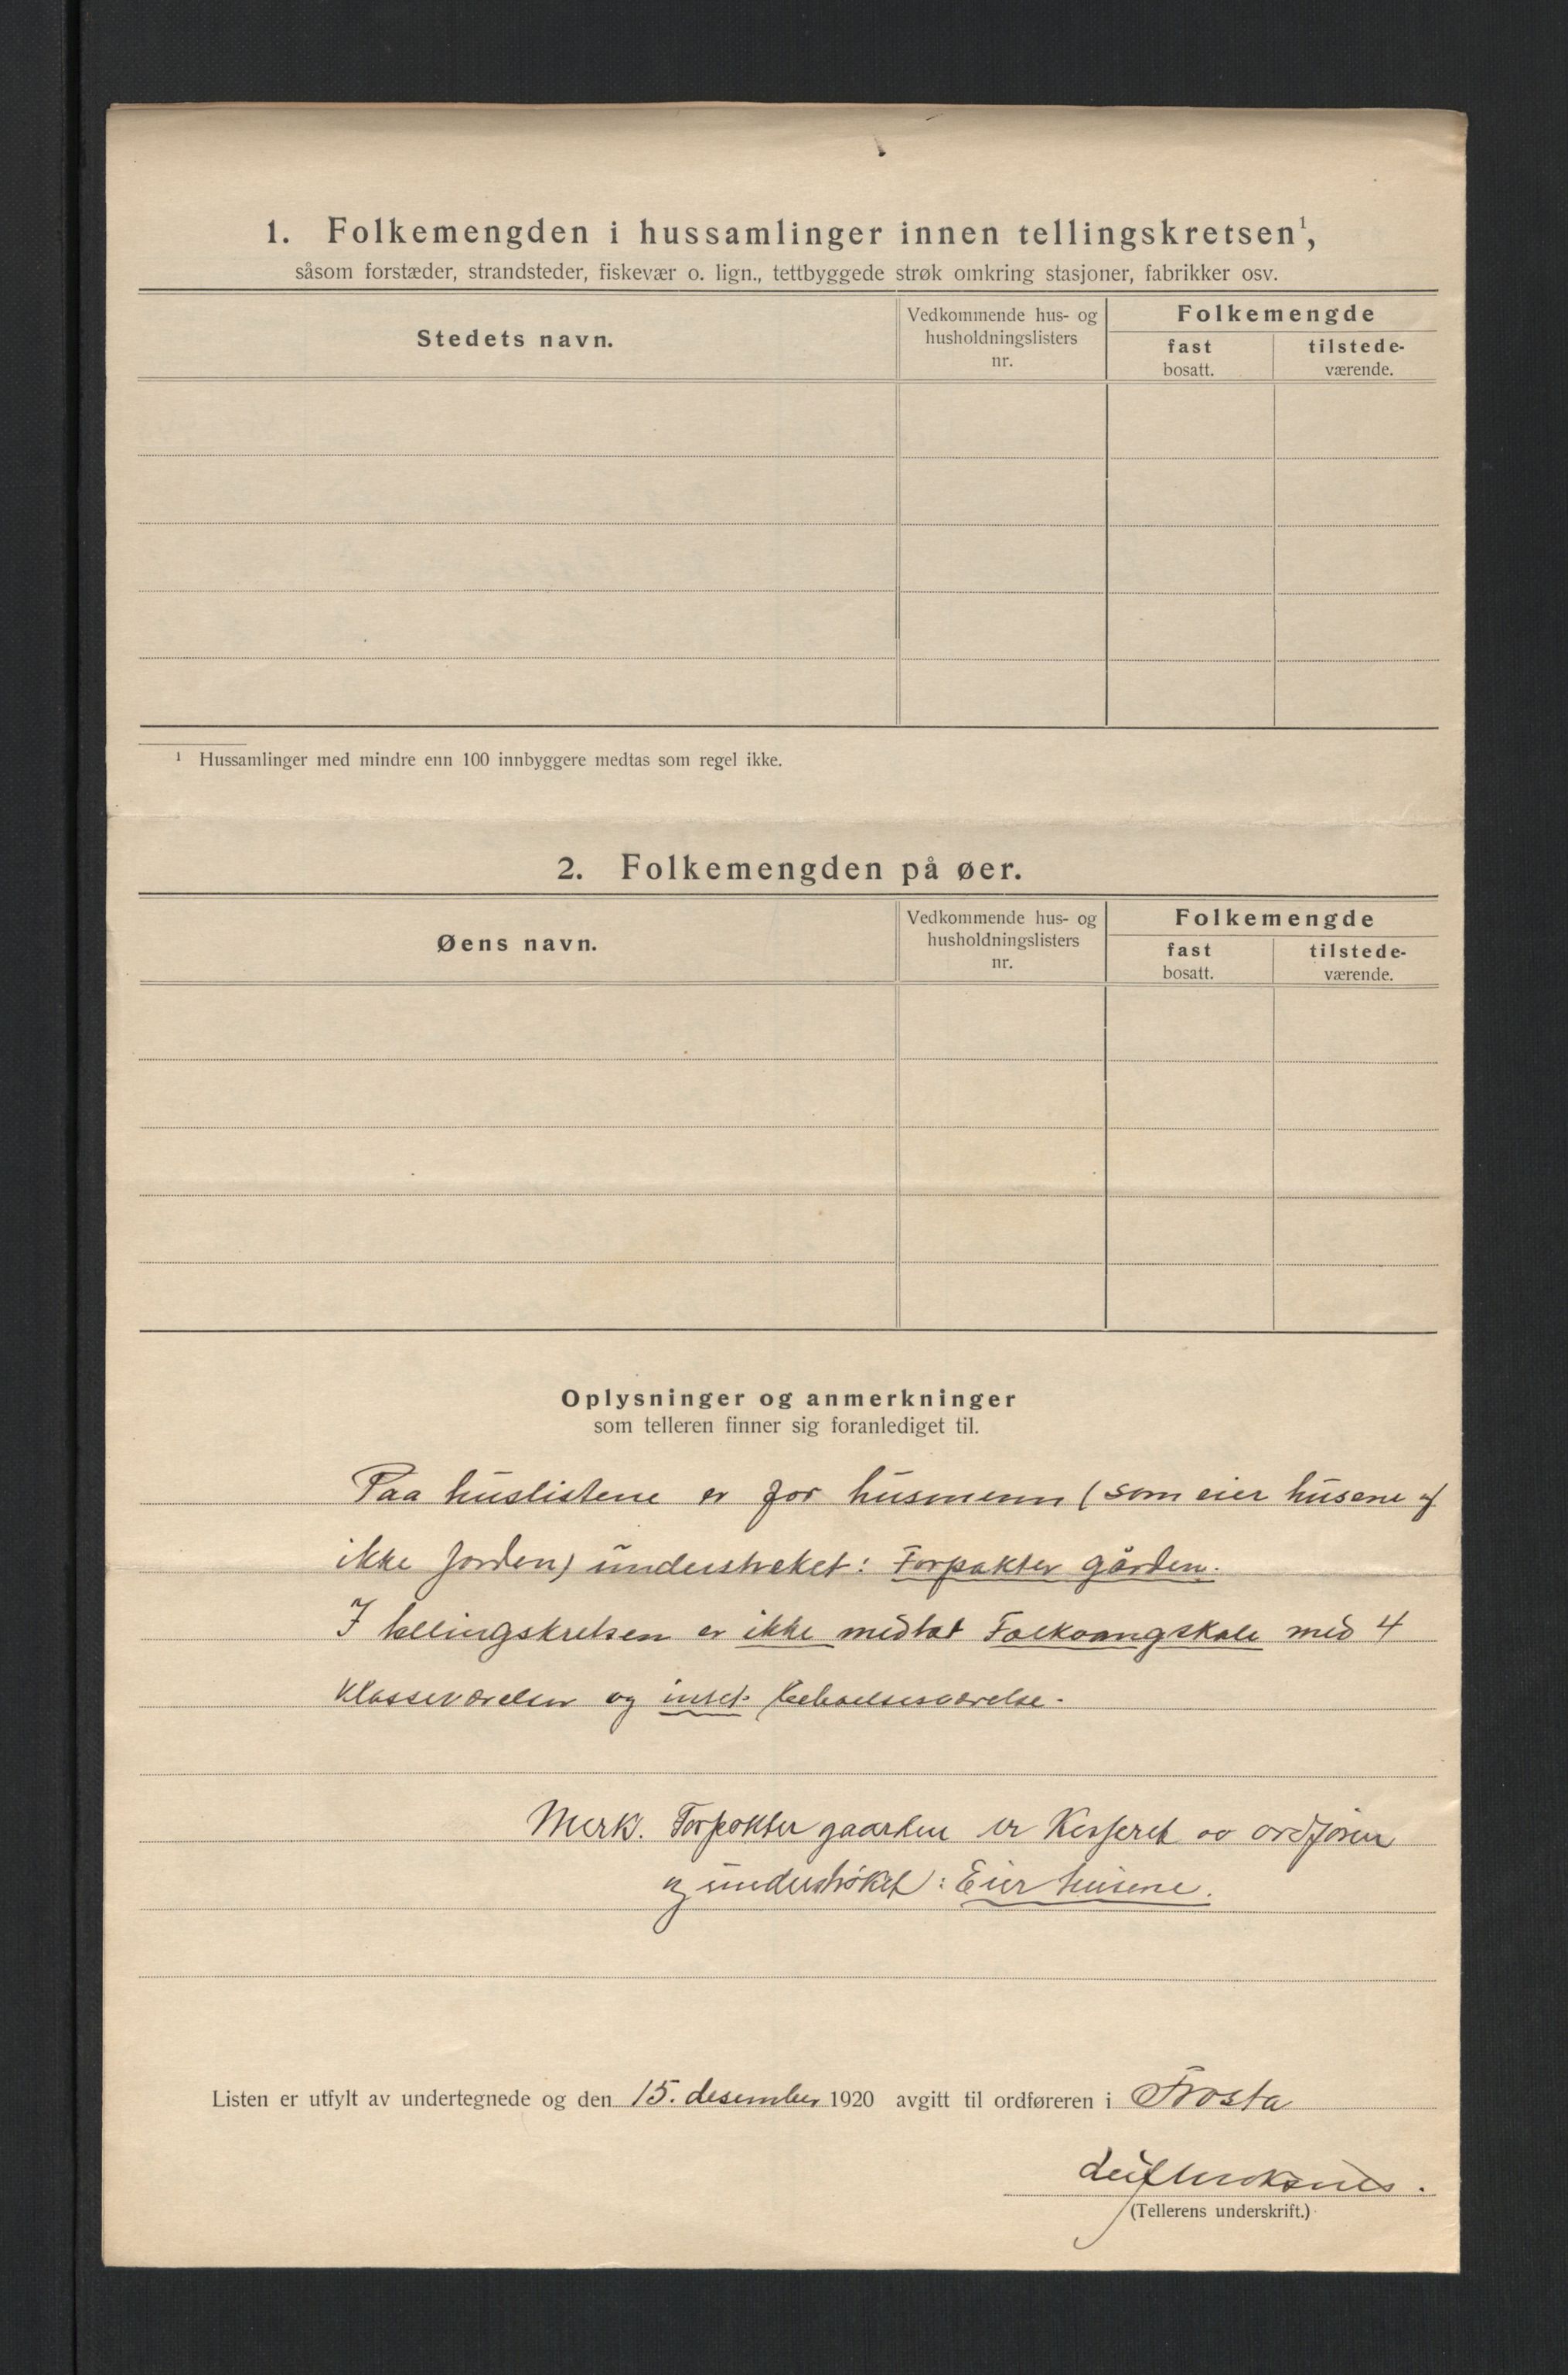 1. Folkemengden i hussamlinger innen tellingskretsen¹,
såsom forstæder, strandsteder, fiskevær o. lign., tettbyggede strøk omkring stasjoner, fabrikker osv.
Stedets navn.
Vedkommende hus- og
husholdningslisters
nr.
Folkemengde
fast
bosatt.
tilstede-
værende.
¹ Hussamlinger med mindre enn 100 innbyggere medtas som regel ikke.
2. Folkemengden på øer.
Øens navn.
Vedkommende hus- og
husholdningslisters
nr.
Folkemengde
fast
bosatt.
tilstede-
værende.
Oplysninger og anmerkninger
som telleren finner sig foranlediget til.
Paa huslistene er for husmenn (som eier husene
ikke jorden) understreket: Forpakter gården.
I tellingskretsen er ikke medtat med 4
Klasseværelser og intet beboelsesværelse.
Merk. Forpakter gaarden er av ordføren
og understøket: Eier husene.
Listen er utfylt av undertegnede og den 15. desember 1920 avgitt til ordføreren i Frosta
Leif
(Tellerens underskrift.)